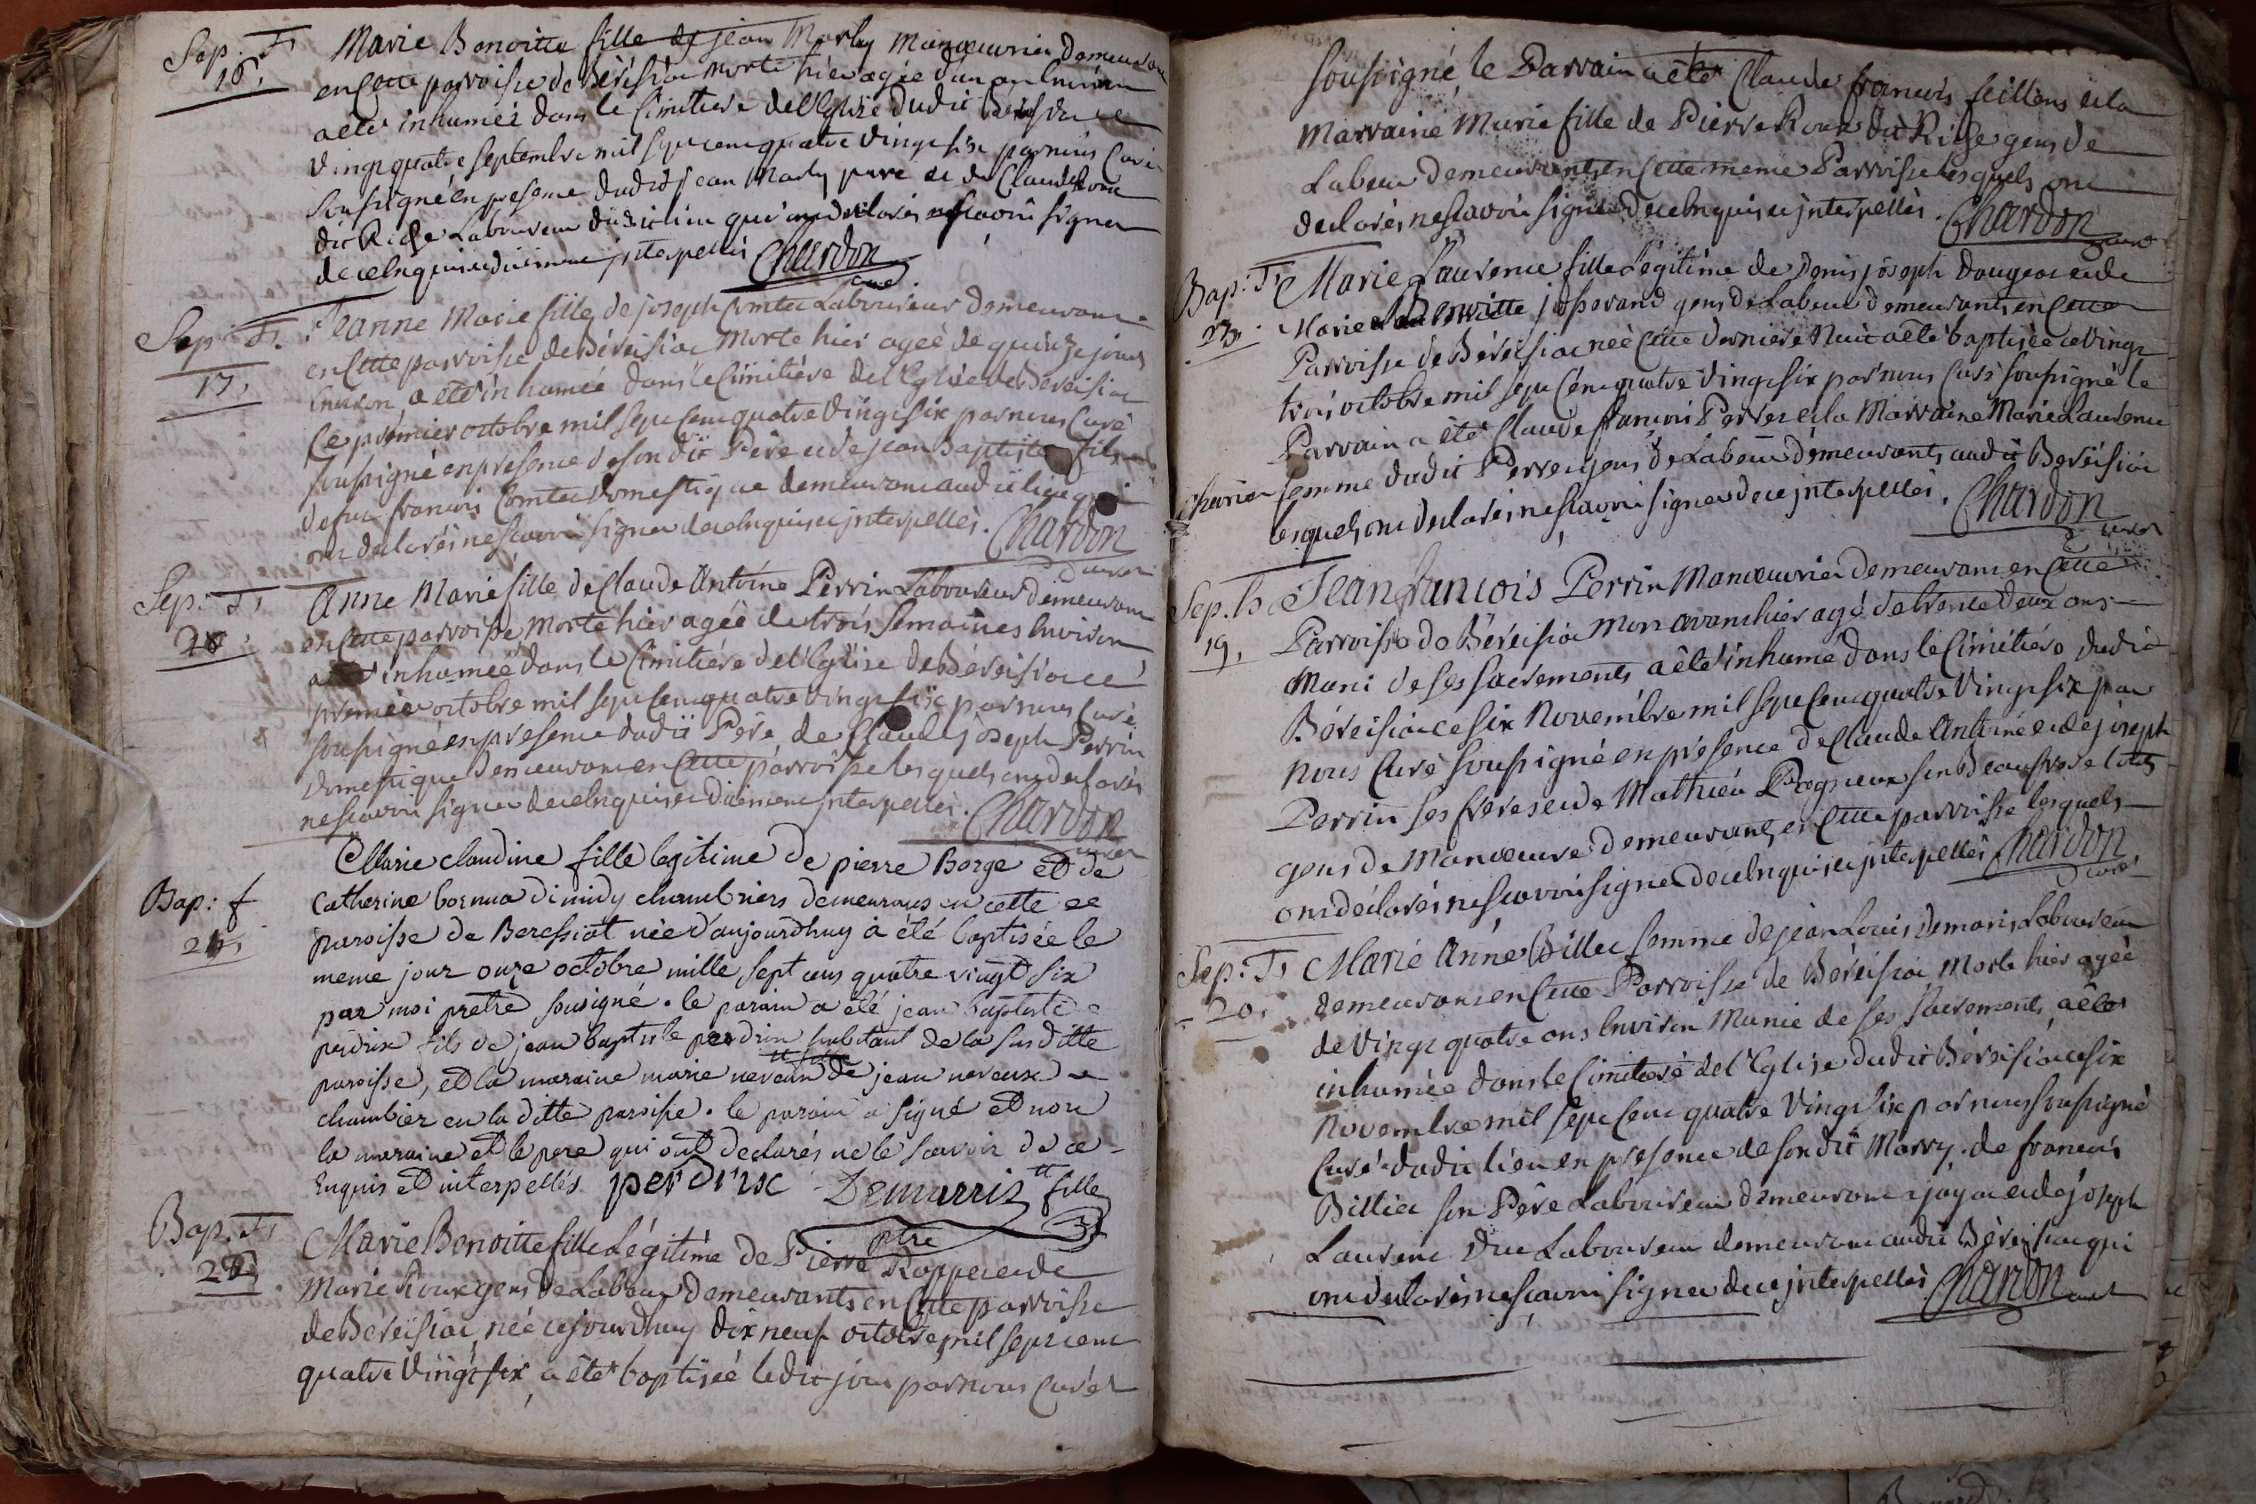 Sep. F.
16.
Marie Benoitte fille de jean Marly Manœuvrier demeurant
en Cette parroisse de Béréisiac morte hier agée d'un an Environ
a été inhumée dans le Cimitiere de l'Eglise dudit Beréisiac ce
vingt quatre septembre mil sept cent quatre vingt six par nous Curé
soussigné en presence dudit jean Marly pere et de Claude Roux
dit Riche Laboureur dudit lieu qui ont declarés ne sçavoir signer
de ce Enquis et duement interpellés Chardon
curé
Sep. F.
17.
Jeanne Marie fille de joseph Comtet Laboureur demeurant
en Cette parroisse de Béréisiac Morte hier agée de quinze jours
Environ a été inhumée dans le Cimitière de l'Eglise de Beréisiac
Ce premier octobre mil sept Cent quatre vingt six par nous Curé
soussigné en presence de son dit Père et de jean Baptiste fils
de feu francois Comtet domestique demeurant audit lieu qui
ont declarés ne sçavoir signer de ce Enquis et interpellés. Chardon
curé
Sep. F.
18.
Anne Marie fille de Claude Antoine Perrin Laboureur demeurant
en Cette parroisse morte hier agée de trois semaines Environ
a été inhumée dans le Cimitiére de l'Eglise de Béréisiac ce
premier octobre mil sept Cent quatre vingt six par nous Curé
soussigné en presence dudit Père de Claude joseph Perrin
domestique demeurant en Cette parroisse lesquels ont declarés
ne sçavoir signer de ce Enquis et duement interpellés. Chardon
curé
Bap: f
21.
Marie claudine fille legitime de pierre Borge et de
Catherine bornua dimidy chambriers demeurans en cette
paroisse de Beressiat née d'aujourdhuy à été baptisée le
meme jour onze octobre mille sept cens quatre vingt six
par moi pretre sousigné. le parain a été jean baptiste
perdrix fils de jean baptiste perdrix habitant de la susditte
paroisse, et la maraine marie neveux de jean neveux
chambrier en la ditte paroisse. le parain a signé et non
la maraine et le pere qui ont declarés ne le scavoir de ce
Enquis et interpellés perdrix Demarris
ptre
Bap. F.
22.
Marie Benoitte fille Légitime de Pierre Roppe et de
Marie Roux gens de Labeur demeurants en Cette parroisse
de Beréisiac née cejourdhuy dix neuf octobre mil sept cent
quatre vingt six a été baptisée ledit jour par nous Curé
soussigné le Parrain a été Claude francois feillens et la
Marraine Marie fille de Pierre Roux dit Riche gens de
Labeur demeurants en Cette meme Parroisse lesquels ont
declarés ne sçavoir signer de ce Enquis et interpellés. Chardon
curé
Bap. F.
23.
Marie Laurence fille Légitime de Denis joseph Dougeat et de
Marie Benoitte josserand gens de Labeur demeurants en Cette
Parroisse de Béréisiac née Cette derniere Nuit a été baptisée ce vingt
trois octobre mil sept Cent quatre vingt six par nous Curé soussigné le
Parrain a été Claude francois Perret et la Marraine Marie Laurence
Chevrier femme dudit Perret gens de Labeur démeurants audit Beréisiac
lesquels ont declarés ne sçavoir signer de ce interpellés. Chardon
curé
Sep. h.
19.
Jean francois Perrin Manœuvrier demeurant en Cette
Parroisse de Béreisiac Mort avanthier agé de trente deux ans
Muni de ses sacrements a été inhumé dans le Cimitiére dudit
Béreisiac ce six Novembre mil sept cent quatre vingt six par
nous Curé soussigné en presence de Claude Antoine et de joseph
Perrin ses freres et de Mathieu Progneux son Beaufrere touts
gens de Manœuvre demeurants en Cette parroisse lesquels
ont déclarés ne scavoir signer de ce Enquis et interpellés Chardon
curé
Sep. F.
20.
Marie Anne Billet femme de jean Louis demaris Laboureur
demeurant en Cette Parroisse de Béréisiac Morte hier agée
de vingt quatre ans Environ Munie de ses sacrements a été
inhumée dans le Cimitiere de l'Eglise dudit Béréisiac ce six
Novembre mil sept Cent quatre vingt six par nous soussigné
Curé dudit lieu en presence de son dit Marry. de francois
Billiet son Père Laboureur demeurant a jayat et de joseph
Laurent Duc Laboureur demeurant audit Béreisiac qui
ont declarés ne sçavoir signer de ce interpellés Chardon curé